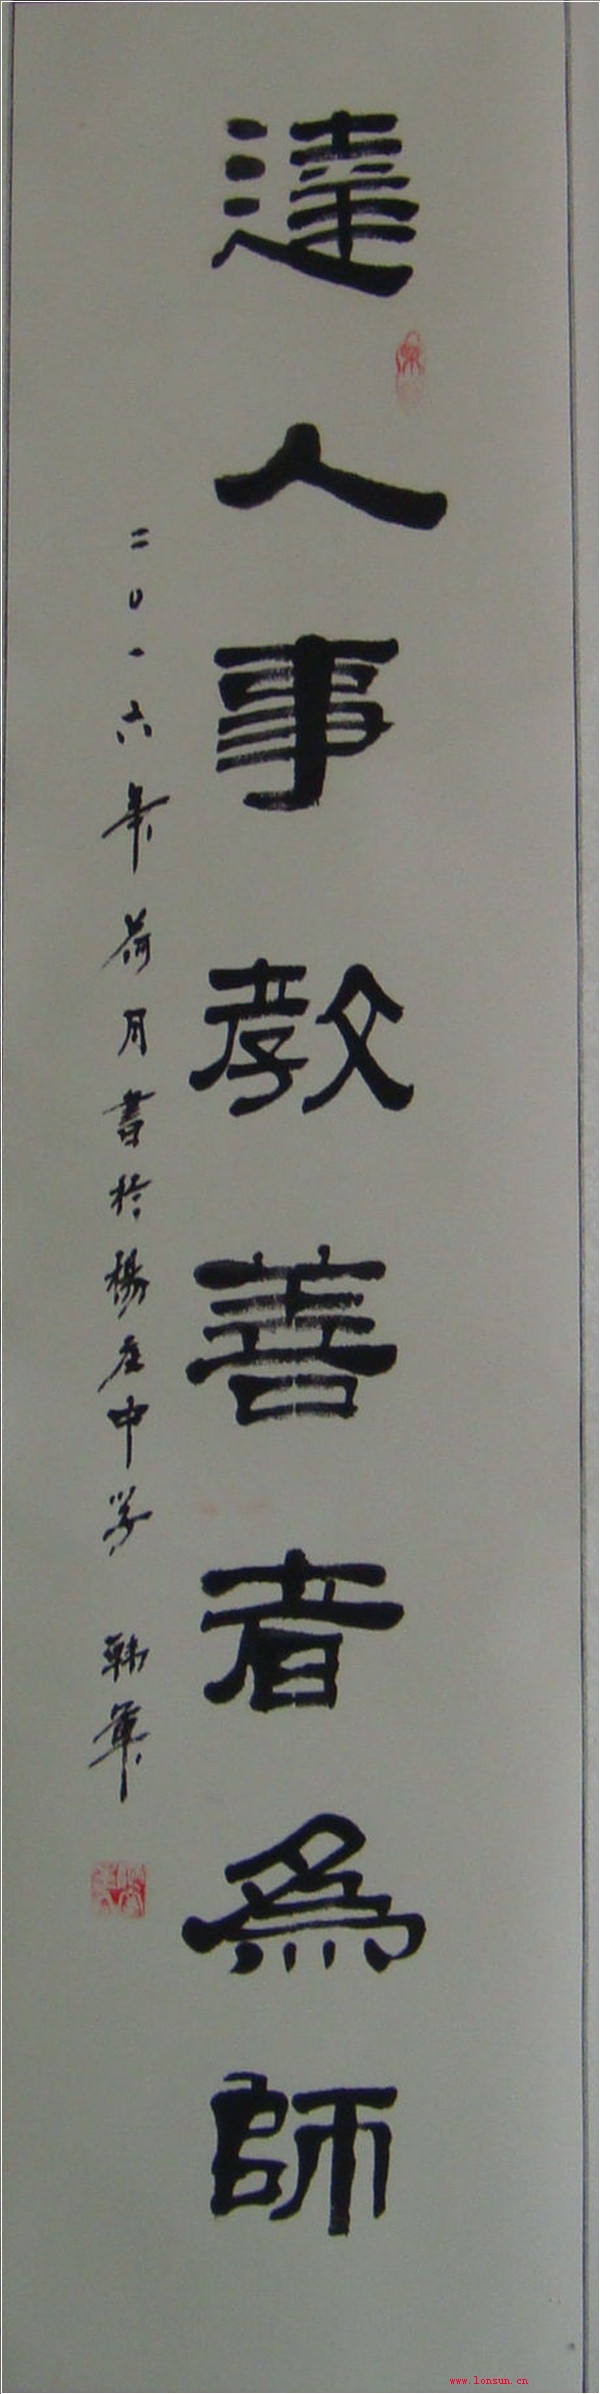 達人事教善者為師
二〇一六年荷月書於楊庄中学 韩軍
www.lonsun.cn